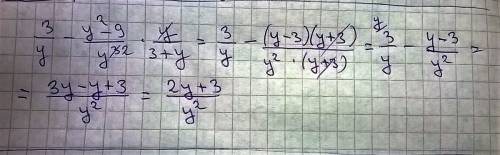 3/y - (y²-9)/y³² · y/(3+y) = 3/y - ((y-3)(y+3))/(y² · (y+3)) = ʸ3/y - (y-3)/y² =
= (3y-y+3)/y² = (2y+3)/y²